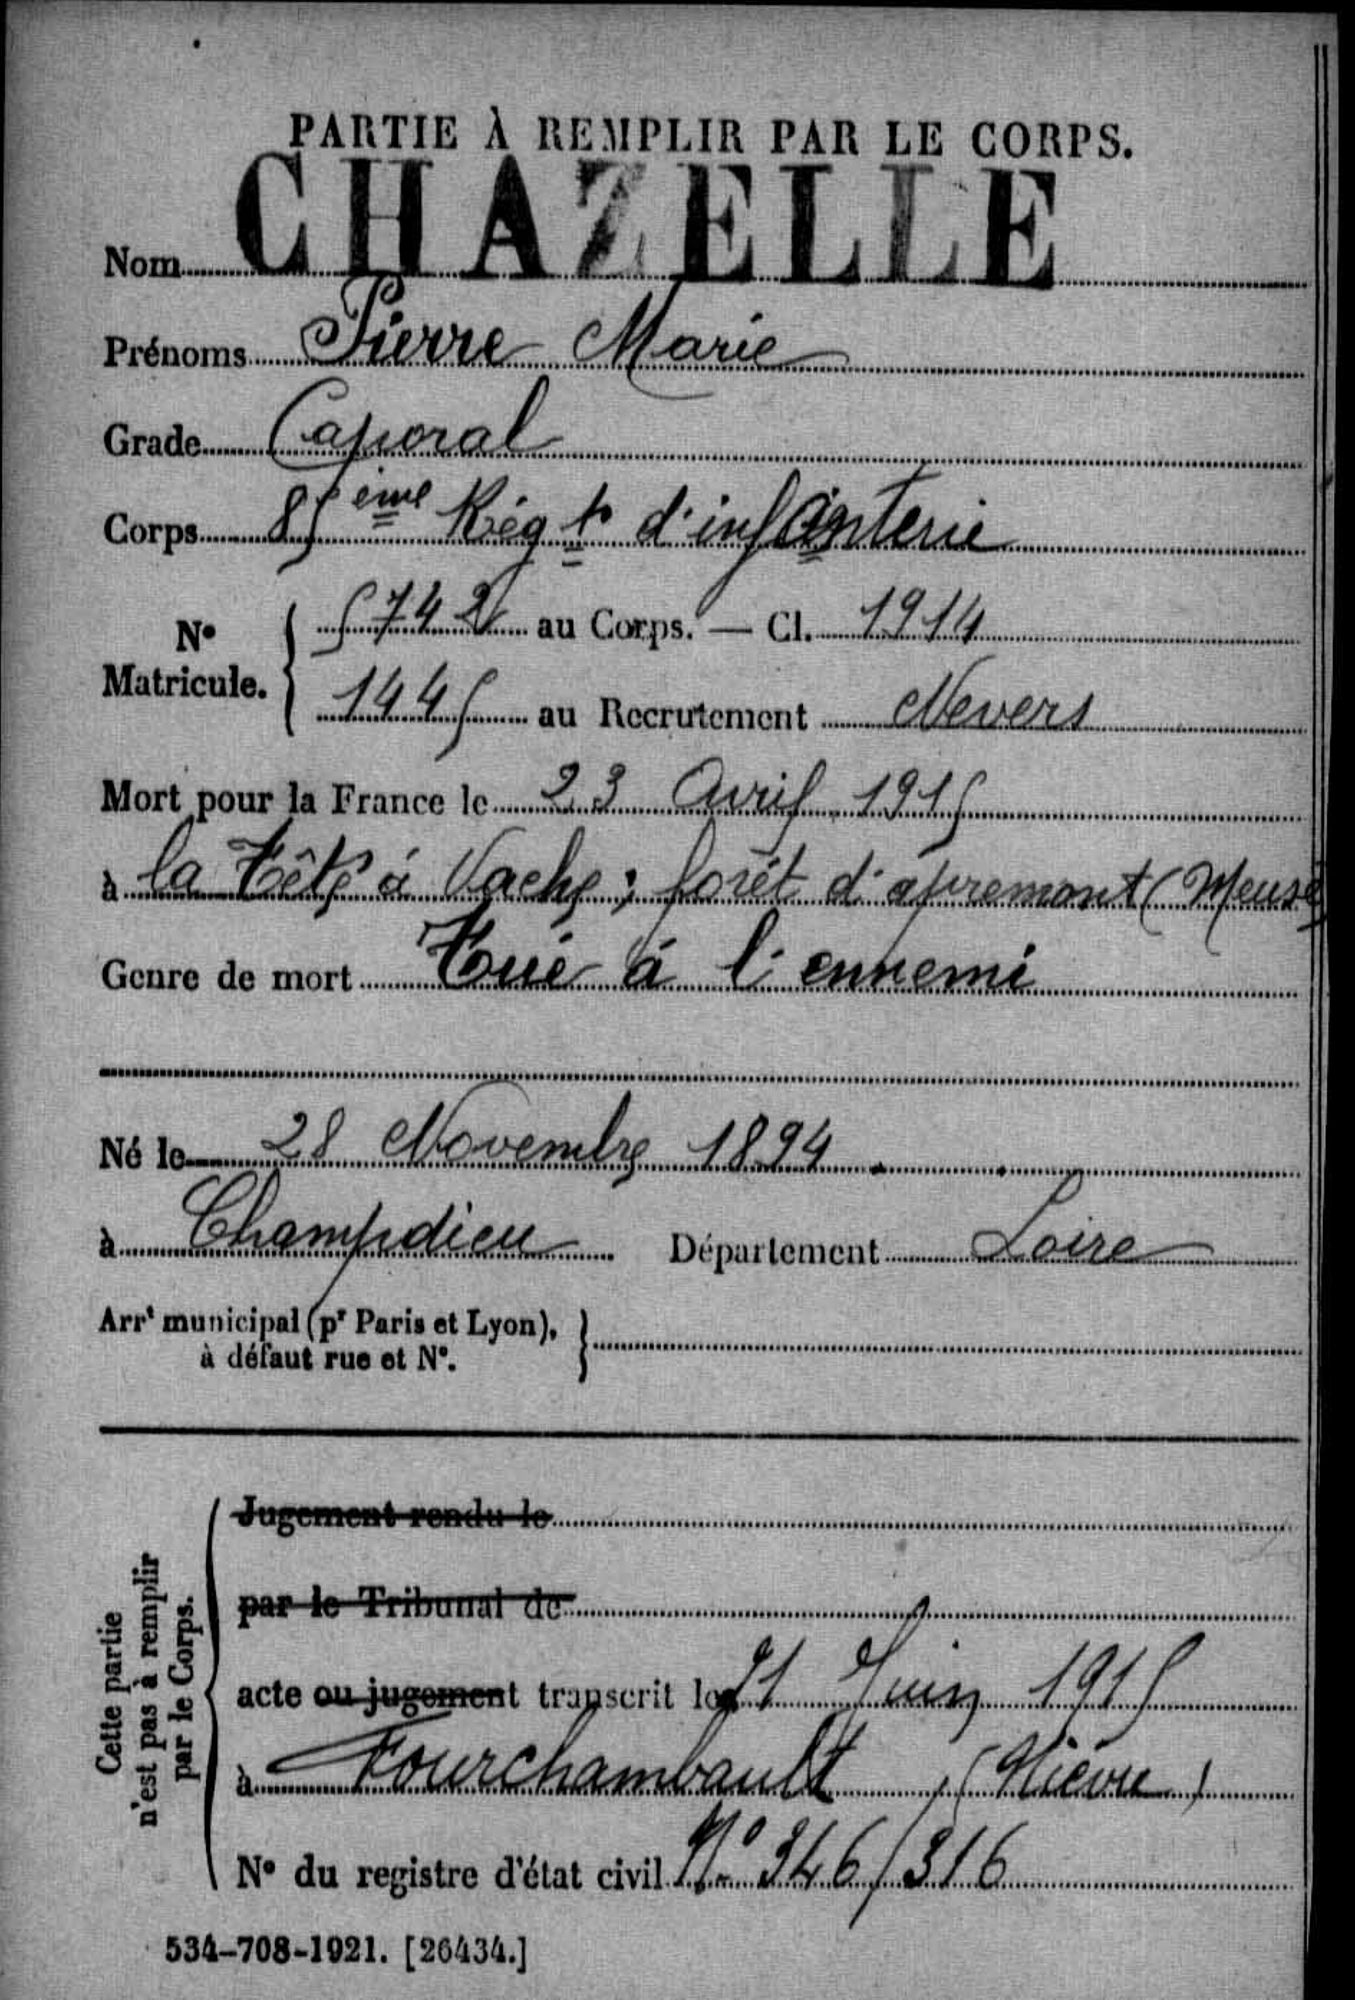 PARTIE À REMPLIR PAR LE CORPS.
Nom CHAZELLE
Prénoms Pierre Marie
Grade Caporal
Corps 85ème Régt d'infanterie
N° Matricule. { 5742 au Corps. — Cl. 1914
1445 au Recrutement Nevers
Mort pour la France le 23 Avril 1915
à la Tête à Vache ; forêt d'apremont (Meuse)
Genre de mort Tué à l'ennemi
Né le 28 Novembre 1894
à Champdieu Département Loire
Arrt municipal (pr Paris et Lyon), à défaut rue et N°. }
Cette partie n'est pas à remplir par le Corps.
Jugement rendu le
par le Tribunal de
acte ou jugement transcrit le 21 Juin 1915
à Fourchambault (Nièvre)
N° du registre d'état civil N° 346/316
534-708-1921. [26434.]